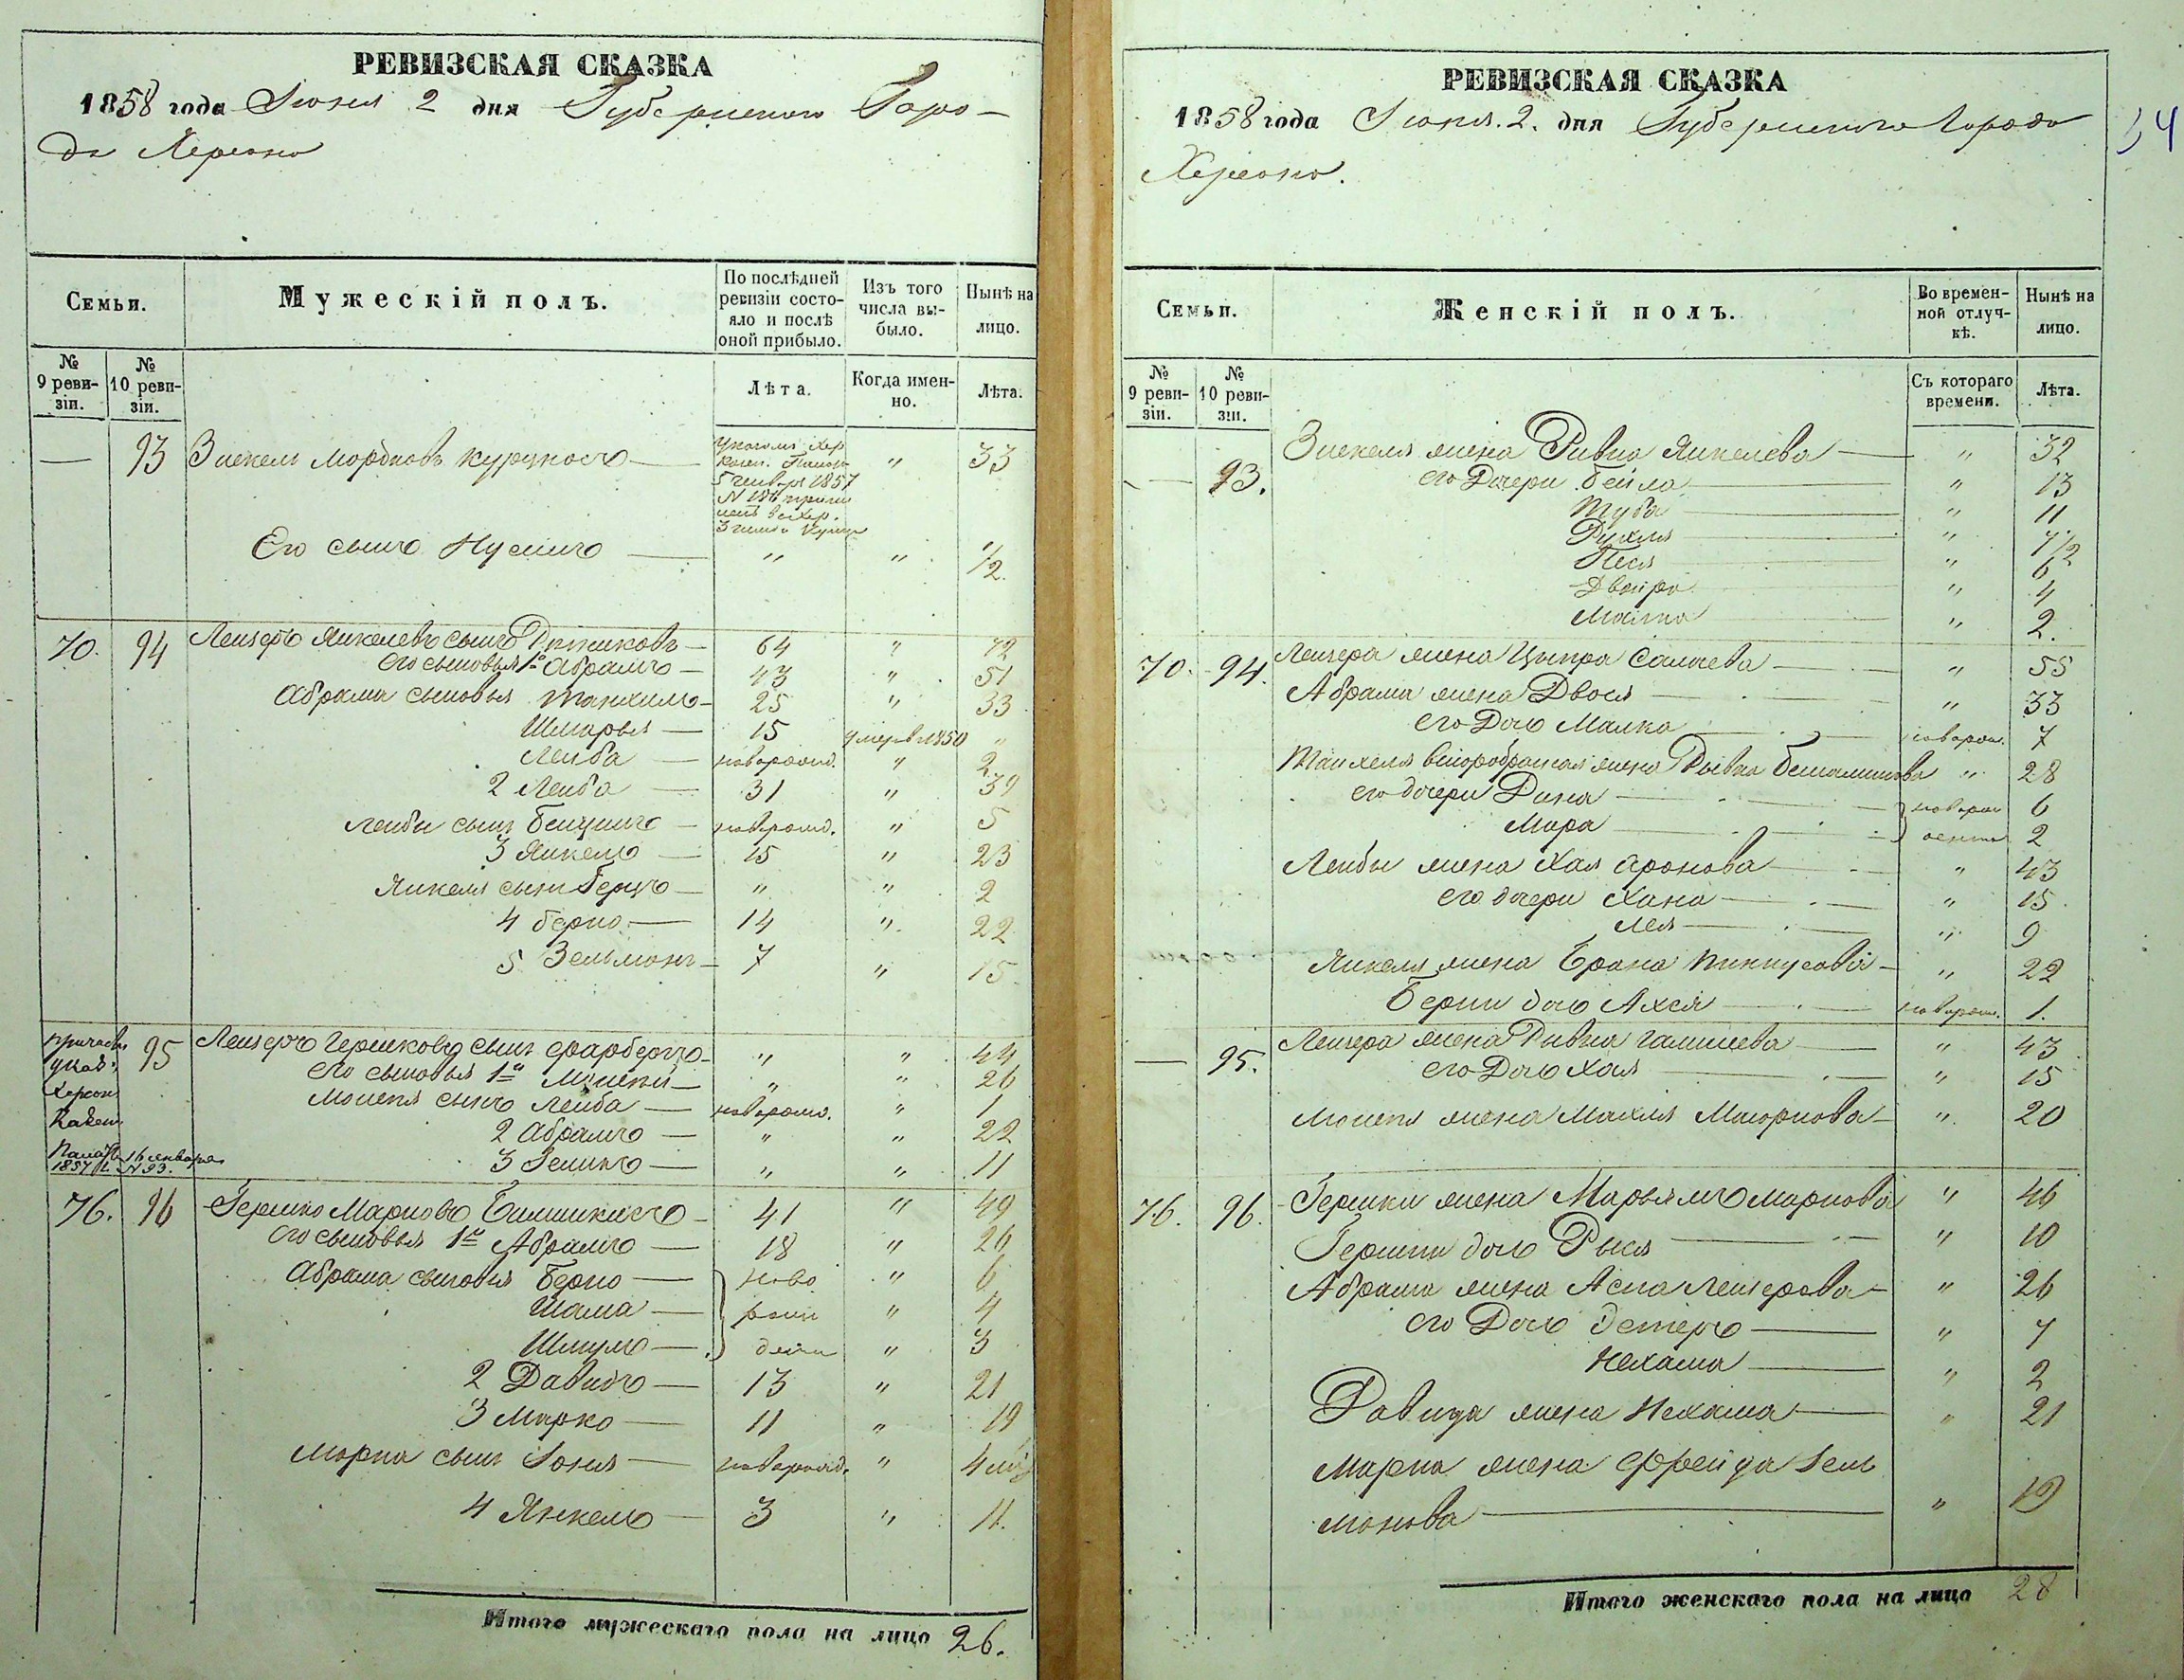 РЕВИЗСКАЯ СКАЗКА
1858 года Июня 2 дня Губернского Горо-
да Херсона
Семьи.
Мужескій полъ.
По послѣдней ревизіи состо-яло и послѣ оной прибыло.
Изъ того числа вы-было.
Нынѣ на лицо.
№ 9 реви-зіи.
№ 10 реви-зіи.
Лѣта.
Когда имен-но.
Лѣта.
— 93 Зискель Мордковъ — " 33
5 генваря 1857
Его сынъ Нусинъ — " " 1/2
70. 94 Лейзеръ Янкелевъ сынъ — 64 " 72
его сыновья 1й Абрамъ — 43 " 51
Абрама сыновья Танхилъ — 25 " 33
Шмарья — 15 умеръ в 1850 "
Лейба — новорожд. " 2
2 Лейба — 31 " 39
Лейбы сынъ Бенционъ — новорожд. " 5
3 Янкель — 15 " 23
Янкеля сынъ Берко — " " 2
4 Берко — 14 " 22
5 Зельманъ — 7 " 15
95 Лейзеръ Гершковъ сынъ Фарберъ — " " 44
его сыновья 1й Мошко — " " 26
Мошки сынъ Лейба — новорожд. " 1
2 Абрамъ — " " 22
3 Зеликъ — " " 11
Херсон.
Казен.
Палаты 16 января
1857 г. N 93.
76. 96 Гершко Марковъ — 41 " 49
его сыновья 1й Абрамъ — 18 " 26
Абрама сыновья Берко — ново " 6
Шама — рож " 4
Шмуль — дены " 3
2 Давидъ — 13 " 21
3 Марко — 11 " 19
Марка сынъ Іона — новорожд. " 4 мѣ
4 Янкель — 3 " 11.
Итого мужескаго пола на лицо 26.
РЕВИЗСКАЯ СКАЗКА
1858 года Июня. 2. дня Губернского Города
Херсона.
54
Семьи.
Женскій полъ.
Во времен-ной отлуч-кѣ.
Нынѣ на лицо.
№ 9 реви-зіи.
№ 10 реви-зіи.
Съ котораго времени.
Лѣта.
— 93. Зискеля жена Ривка Янкелева — " 32
его Дочери Бейла — " 13
Туба — " 11
Рухля — " 7 1/2
Песя — " 6
Двейра — " 4
Малка — " 2.
70. 94. Лейзера жена Ципра — " 55
Абрама жена Двося — " 33
его Дочь Малка — новорож. 7
Танхеля второбрачная жена Рывка " 28
его дочери Дина — новорож 6
Мара — 2
Лейбы жена Хая Аронова — " 43
его дочери Хана — " 15
Лея — " 9
Янкеля жена Брана Пинкусова — " 22
Берки дочь Ахся — новорож. 1.
— 95. Лейзера жена Ривка — " 43
его Дочь Хая — " 15
Мошки жена Махля — " 20
76. 96. Гершки жена Марьямъ Маркова " 46
Гершки дочь Рыся — " 10
Абрама жена Аспа Лейзерова — " 26
его Дочь Эстеръ — " 7
Нехама — " 2
Давида жена Нехама — " 21
Марка жена Фрейда Зель
монова — " 19
Итого женскаго пола на лицо 28